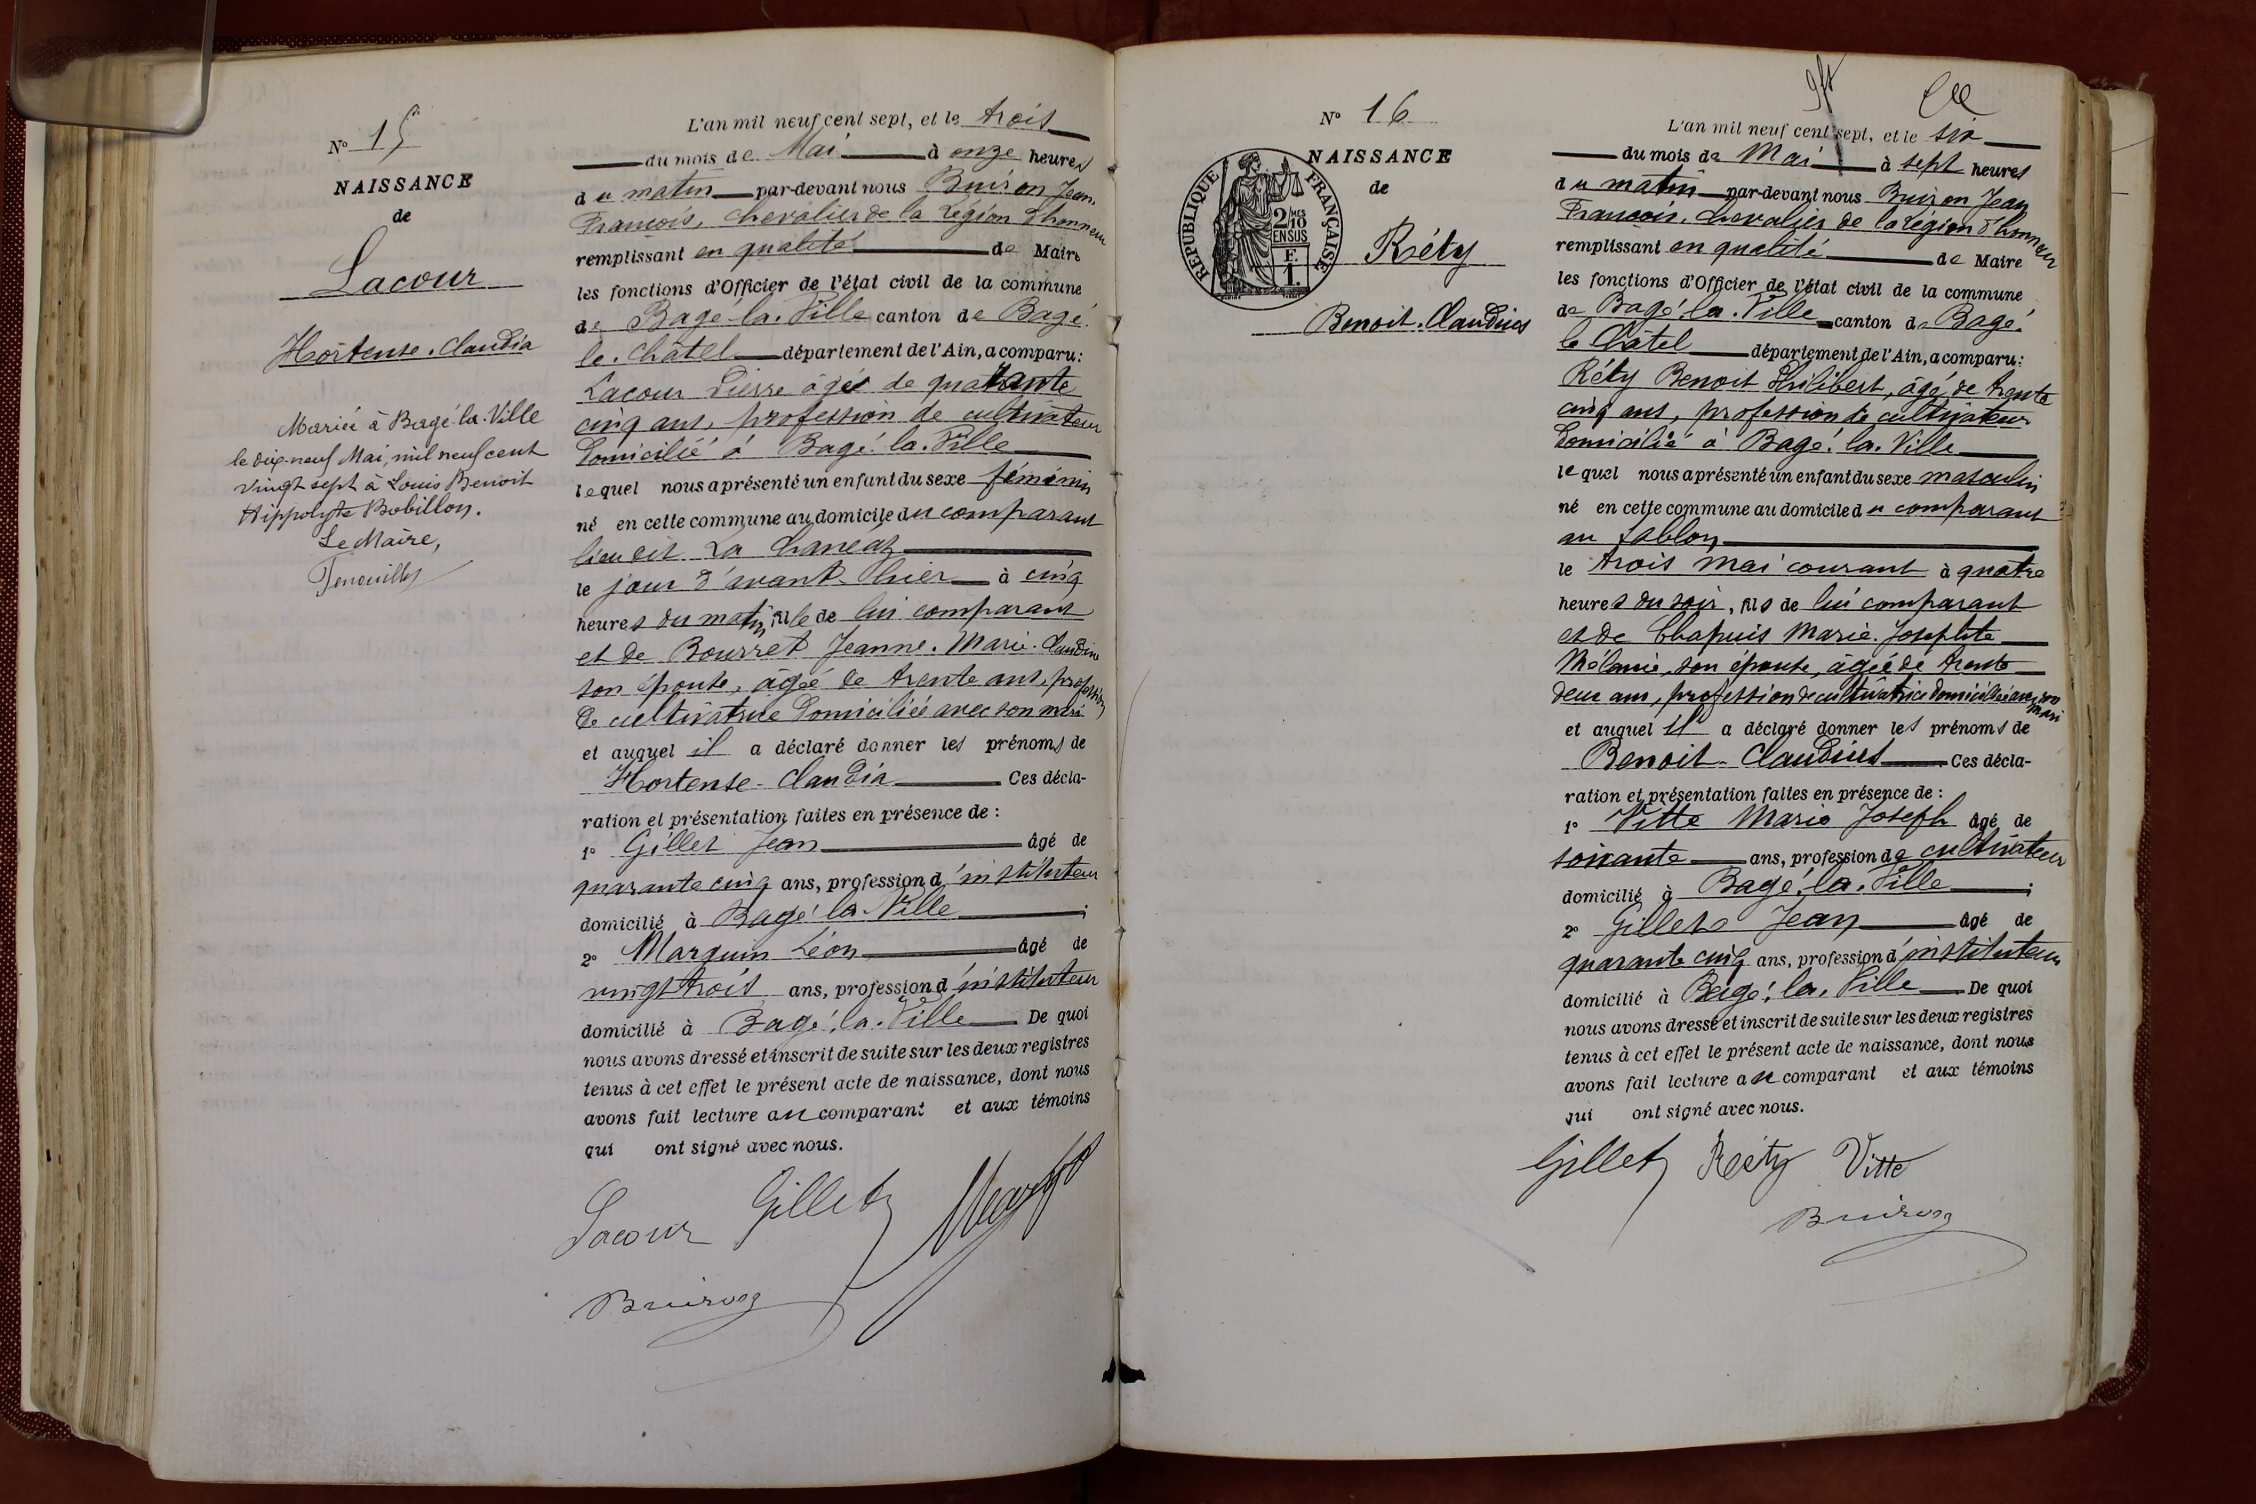 N° 15
NAISSANCE
de
Lacour
Hortense. Claudia
Mariée à Bagé-la-Ville
le dix-neuf Mai, mil neuf cent
vingt sept à Louis Benoit
Hippolyte Bobillon.
Le Maire,
L'an mil neuf cent sept, et le trois
du mois de Mai à onze heures
du matin par-devant nous Buiron Jean
François, chevalier de la Légion d'honneur
remplissant en qualité de Maire
les fonctions d'Officier de l'état civil de la commune
de Bagé-la-Ville canton de Bagé
le. Châtel département de l'Ain, a comparu :
Lacour Pierre âgé de quarante
cinq ans, profession de cultivateur
domicilié à Bagé. la. Ville
lequel nous a présenté un enfant du sexe féminin
né en cette commune au domicile du comparant
lieu dit La
le jour d'avant-hier à cinq
heures du matin, fille de lui comparant
et de Bourret Jeanne. Marie. Claudine
son épouse, agée de trente ans, profession
de cultivatrice domiciliée avec son mari
et auquel il a déclaré donner les prénoms de
Hortense-Claudia Ces décla-
ration et présentation faites en présence de :
1° Gillet Jean âgé de
quarante cinq ans, profession d'instituteur
domicilié à Bagé. la. Ville ;
2° Marguin Léon âgé de
vingt trois ans, profession d'instituteur
domicilié à Bagé. la. Ville De quoi
nous avons dressé et inscrit de suite sur les deux registres
tenus à cet effet le présent acte de naissance, dont nous
avons fait lecture au comparant et aux témoins
qui ont signé avec nous.
Lacour Gillet
Buiron
N° 16
NAISSANCE
de
RÉPUBLIQUE FRANÇAISE
2 MES 10
EN SUS
F.
1.
Réty
Benoit. Claudius
L'an mil neuf cent sept, et le six
du mois de Mai à sept heures
du matin par-devant nous Buiron Jean
François, chevalier de la Légion d'honneur
remplissant en qualité de Maire
les fonctions d'Officier de l'état civil de la commune
de Bagé. la. Ville canton de Bagé.
le Châtel département de l'Ain, a comparu :
Réty Benoit Philibert, âgé de trente
cinq ans, profession de cultivateur
domicilié à Bagé. la. Ville
lequel nous a présenté un enfant du sexe masculin
né en cette commune au domicile du comparant
au Sablon
le trois mai courant à quatre
heures du soir, fils de lui comparant
et de Chapuis Marie. Josephte
Mélanie, son épouse, âgée de trente
deux ans, profession de cultivatrice domiciliée avec son mari
et auquel il a déclaré donner les prénoms de
Benoit-Claudius Ces décla-
ration et présentation faites en présence de :
1° Vitte Marie Joseph âgé de
soixante ans, profession de cultivateur
domicilié à Bagé. la. Ville ;
2° Gillet Jean âgé de
quarante cinq ans, profession d'instituteur
domicilié à Bagé. la. Ville De quoi
nous avons dressé et inscrit de suite sur les deux registres
tenus à cet effet le présent acte de naissance, dont nous
avons fait lecture au comparant et aux témoins
qui ont signé avec nous.
Gillet Réty Vitte
Buiron